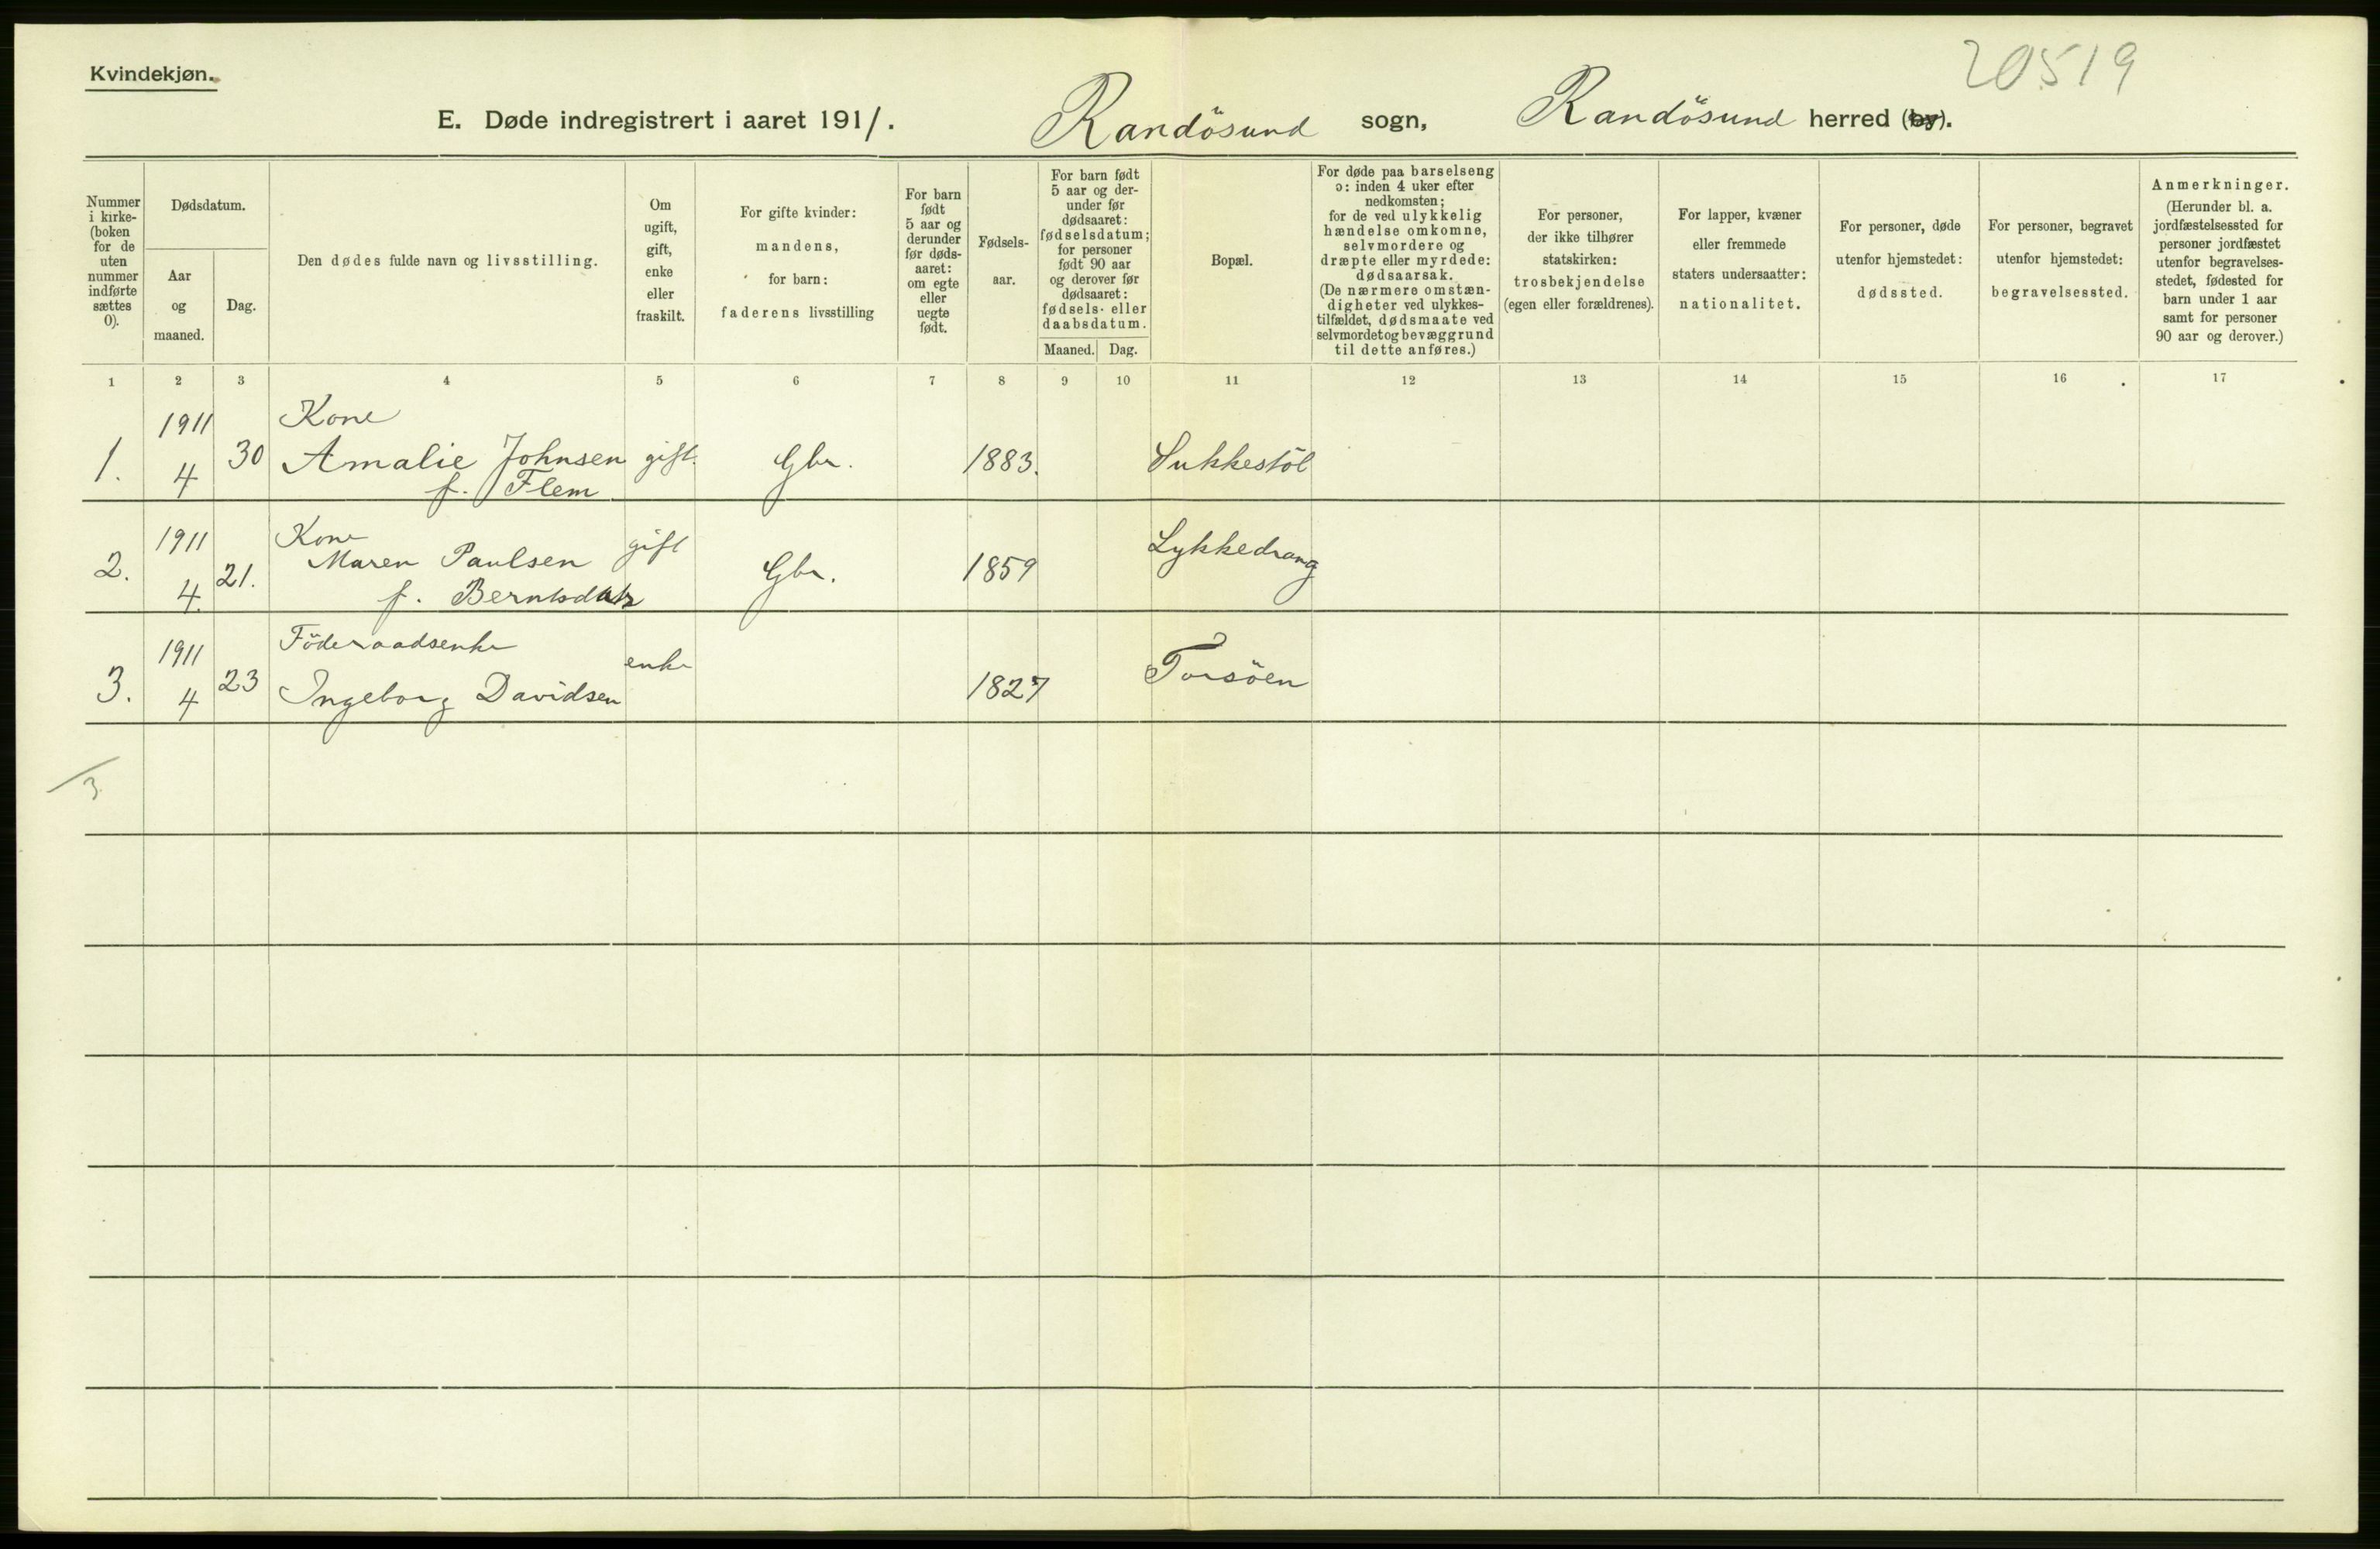 Kvindekjøn.
20519
E. Døde indregistrert i aaret 1911. Randösund sogn, Randösund herred (by).
Nummer i kirke- (boken for de uten nummer indførte sættes 0).
Dødsdatum.
Aar og maaned.
Dag.
Den dødes fulde navn og livsstilling.
Om ugift, gift, enke eller fraskilt.
For gifte kvinder: mandens, for barn: faderens livsstilling
For barn født 5 aar og derunder før døds- aaret: om egte eller uegte født.
Fødsels- aar.
For barn født 5 aar og der- under før dødsaaret: fødselsdatum; for personer født 90 aar og derover før dødsaaret: fødsels- eller daabsdatum.
Maaned. Dag.
Bopæl.
For døde paa barselseng ɔ: inden 4 uker efter nedkomsten; for de ved ulykkelig hændelse omkomne, selvmordere og dræpte eller myrdede: dødsaarsak. (De nærmere omstæn- digheter ved ulykkes- tilfældet, dødsmaate ved selvmordet og bevæggrund til dette anføres.)
For personer, der ikke tilhører statskirken: trosbekjendelse (egen eller forældrenes).
For lapper, kvæner eller fremmede staters undersaatter: nationalitet.
For personer, døde utenfor hjemstedet: dødssted.
For personer, begravet utenfor hjemstedet: begravelsessted.
Anmerkninger. (Herunder bl. a. jordfæstelsessted for personer jordfæstet utenfor begravelses- stedet, fødested for barn under 1 aar samt for personer 90 aar og derover.)
1 2 3 4 5 6 7 8 9 10 11 12 13 14 15 16 17
1911 Kone
1. 4 30 Amalie Johnsen gift. Gbr. 1883. Sukkestöl
f. Flem
1911 Kone gift Lykkedrang
2. 4. 21. Maren Paulsen Gbr. 1859
f. Berntsdatr
1911 Föderaadsenke enke
3. 4 23 Ingeborg Davidsen 1827 Torsöen
3